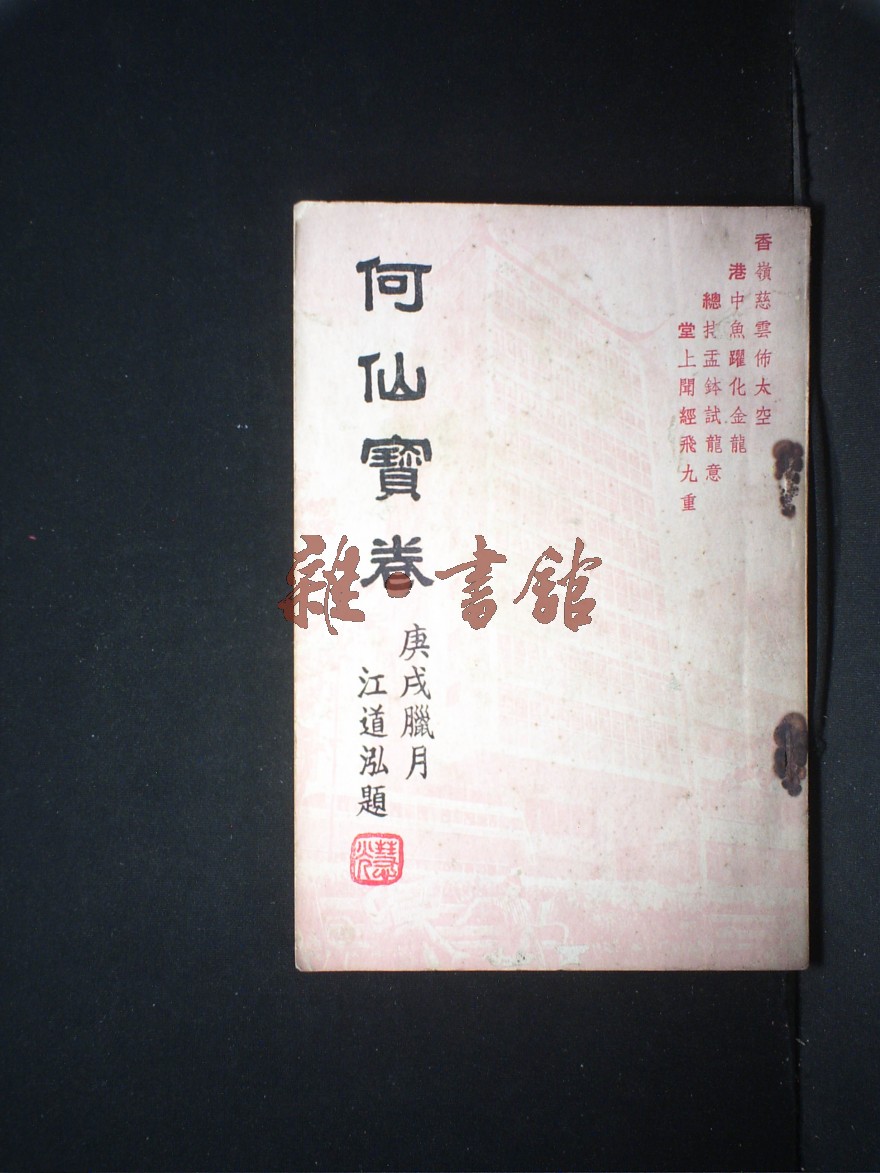 香嶺慈雲佈太空
港中魚躍化金龍
總扶盂鉢試龍意
堂上聞經飛九重
何仙寶卷
庚戌臘月
江道泓題
雜·書館